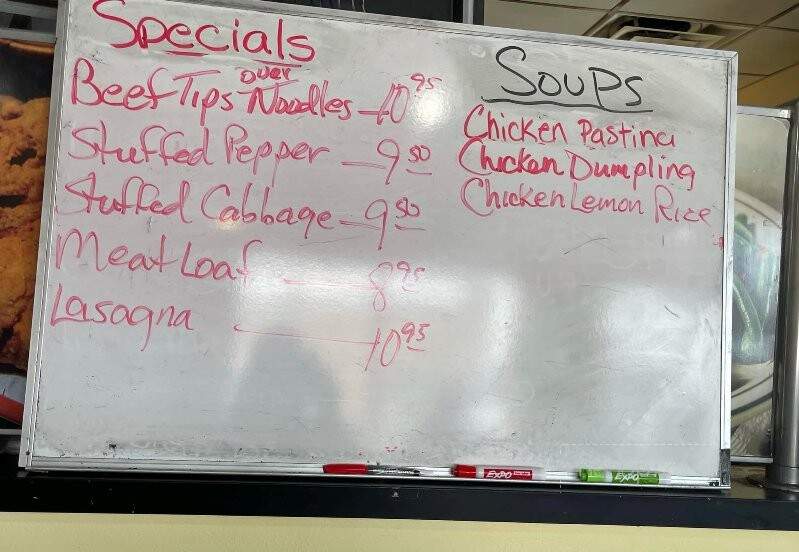 Specials
Beef Tips over Noodles - 10 95
Stuffed Pepper - 9 50
Stuffed Cabbage - 9 50
Meat Loaf - 8 95
Lasagna - 10 95
Soups
Chicken Pastina
Chicken Dumpling
Chicken Lemon Rice
EXPO
EXPO